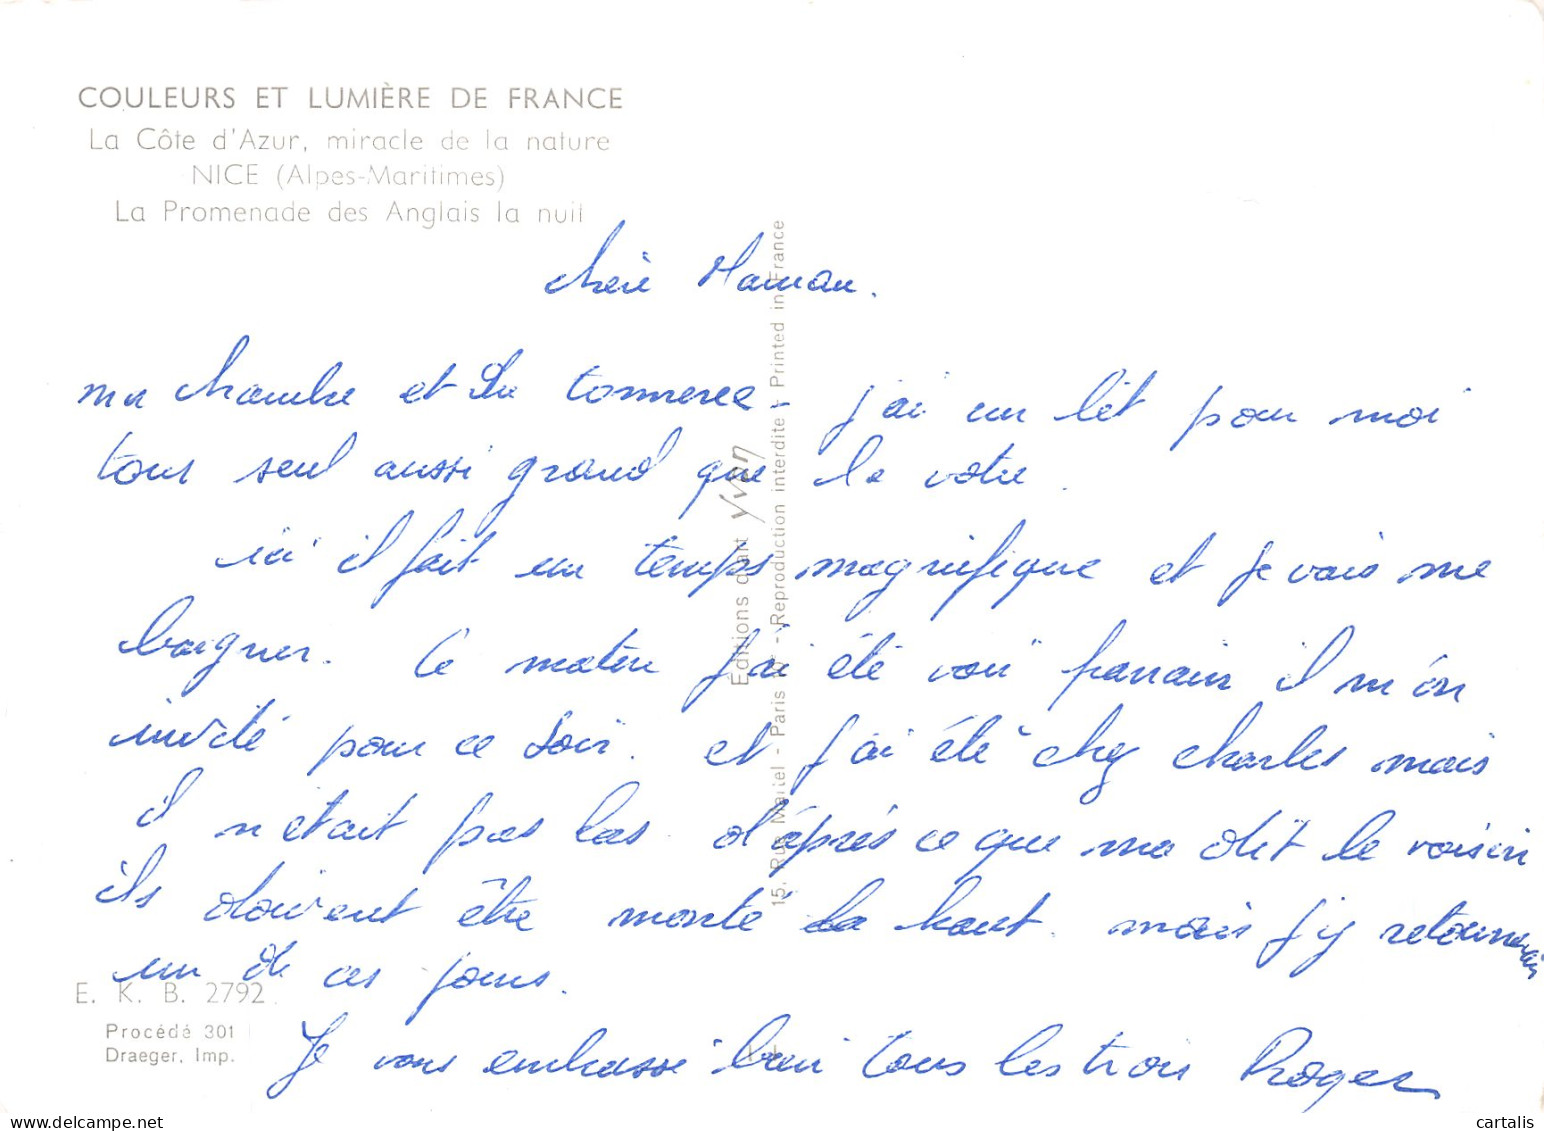 COULEURS ET LUMIÈRE DE FRANCE
La Côte d'Azur, miracle de la nature
NICE (Alpes-Maritimes)
La Promenade des Anglais la nuit
chère Maman.
ma chambre et du tonnerre - j'ai un lit pour moi
tous seul aussi grand que le votre.
ici il fait un temps magnifique et je vais me
baigner. Ce matin j'ai été voir parrain il m'on
invité pour ce soir. et j'ai été chez charles mais
il n'était pas las. d'après ce que ma dit le voisin
ils doivent être monté la haut. mais j'y retournerais
un de ces jours.
Je vous embrasse bien tous les trois Roger
E. K. B. 2792
Procédé 301
Draeger, Imp.
Éditions d'art Yvon
15, Rue Martel - Paris 10e - Reproduction interdite - Printed in France
cartalis
www.delcampe.net